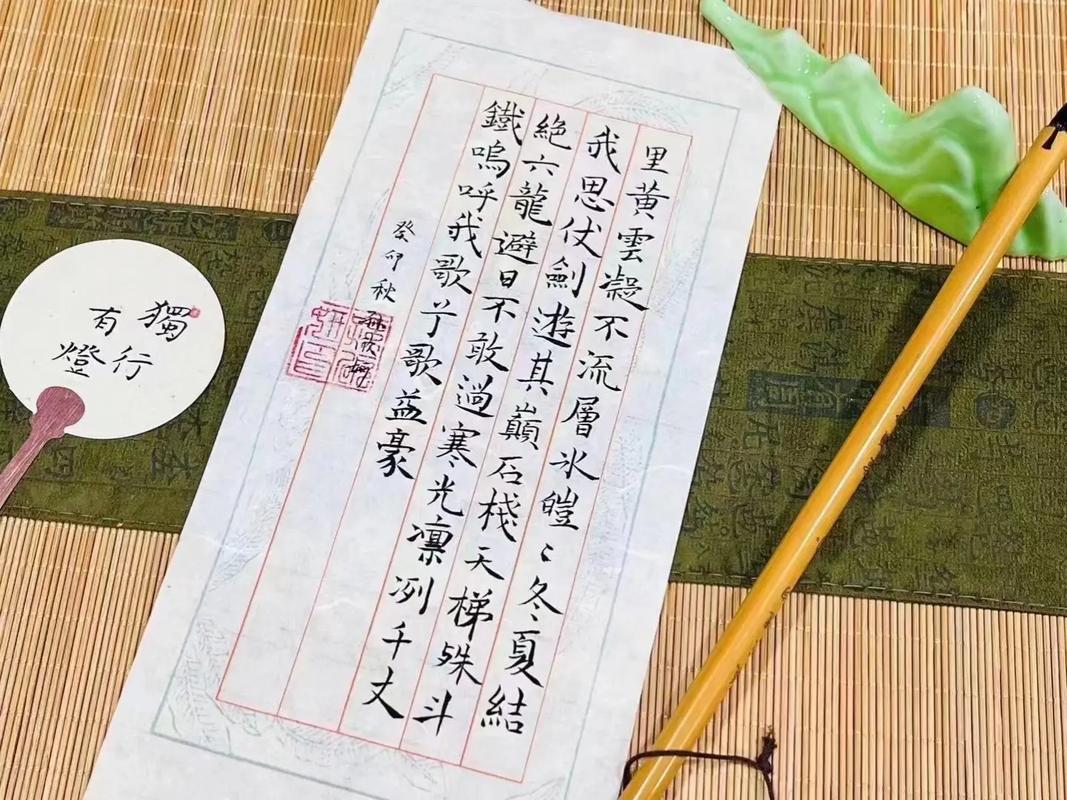 里黄雲凝不流層冰皚〻冬夏結
我思仗劍遊其巔石棧天梯殊斗
絶六龍避日不敢過寒光凜冽千丈
鐵嗚呼我歌兮歌益豪
癸卯秋
獨行
有燈